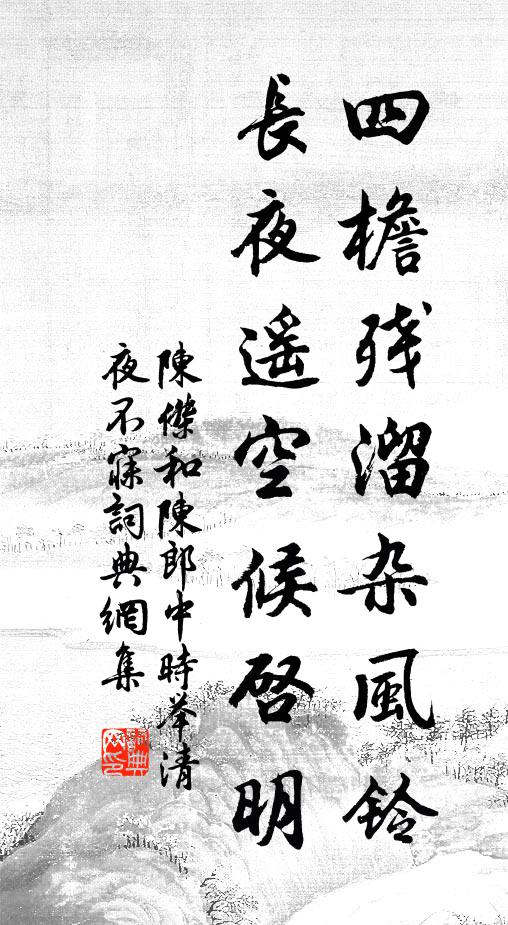 四檐残溜杂風鈴
長夜遥空候啓明
陳傑和陳郎中時举清
夜不寐詞典網集